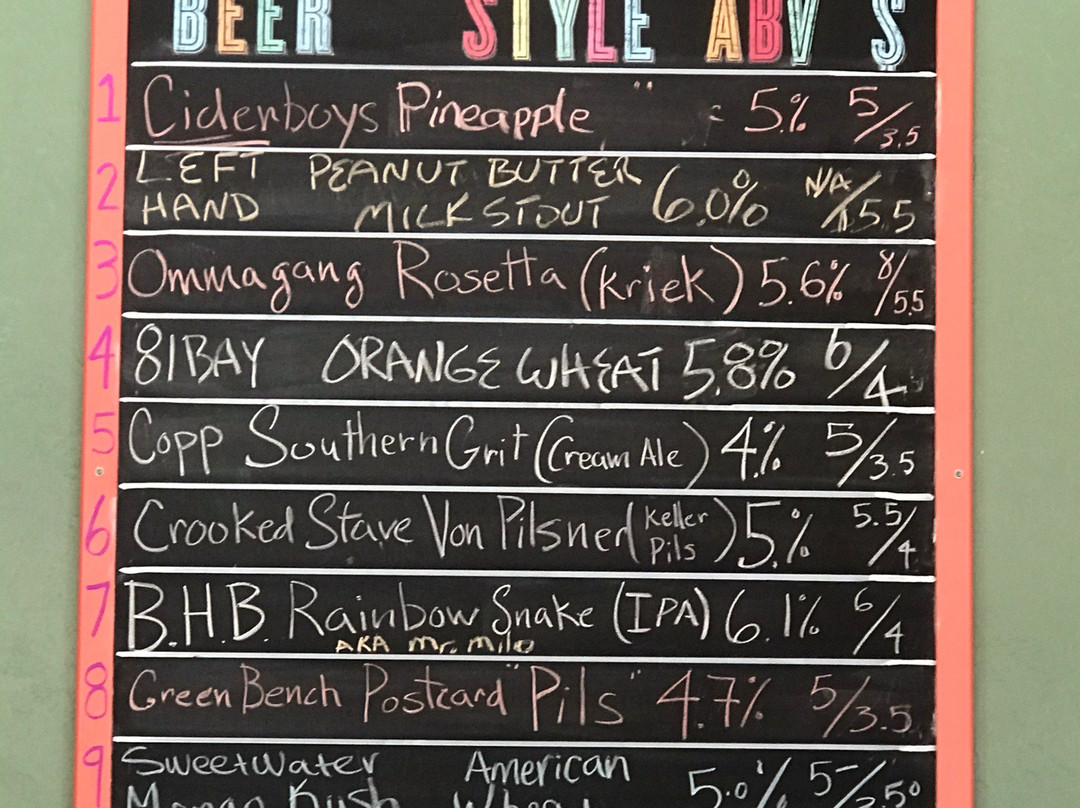 BEER STYLE ABV $
1 Ciderboys Pineapple " 5.% 5/3.5
2 LEFT HAND PEANUT BUTTER MILK STOUT 6.0% N/A/5.5
3 Ommagang Rosetta (Kriek) 5.6% 8/5.5
4 81BAY ORANGE WHEAT 5.8% 6/4
5 Copp Southern Grit (Cream Ale) 4.% 5/3.5
6 Crooked Stave Von Pilsner (Keller Pils) 5.% 5.5/4
7 B.H.B. Rainbow Snake (IPA) 6.1% 6/4
AKA Mr. Milo
8 Green Bench Postcard "Pils" 4.7% 5/3.5
9 Sweetwater American 5.0% 5-/3.50
Kush